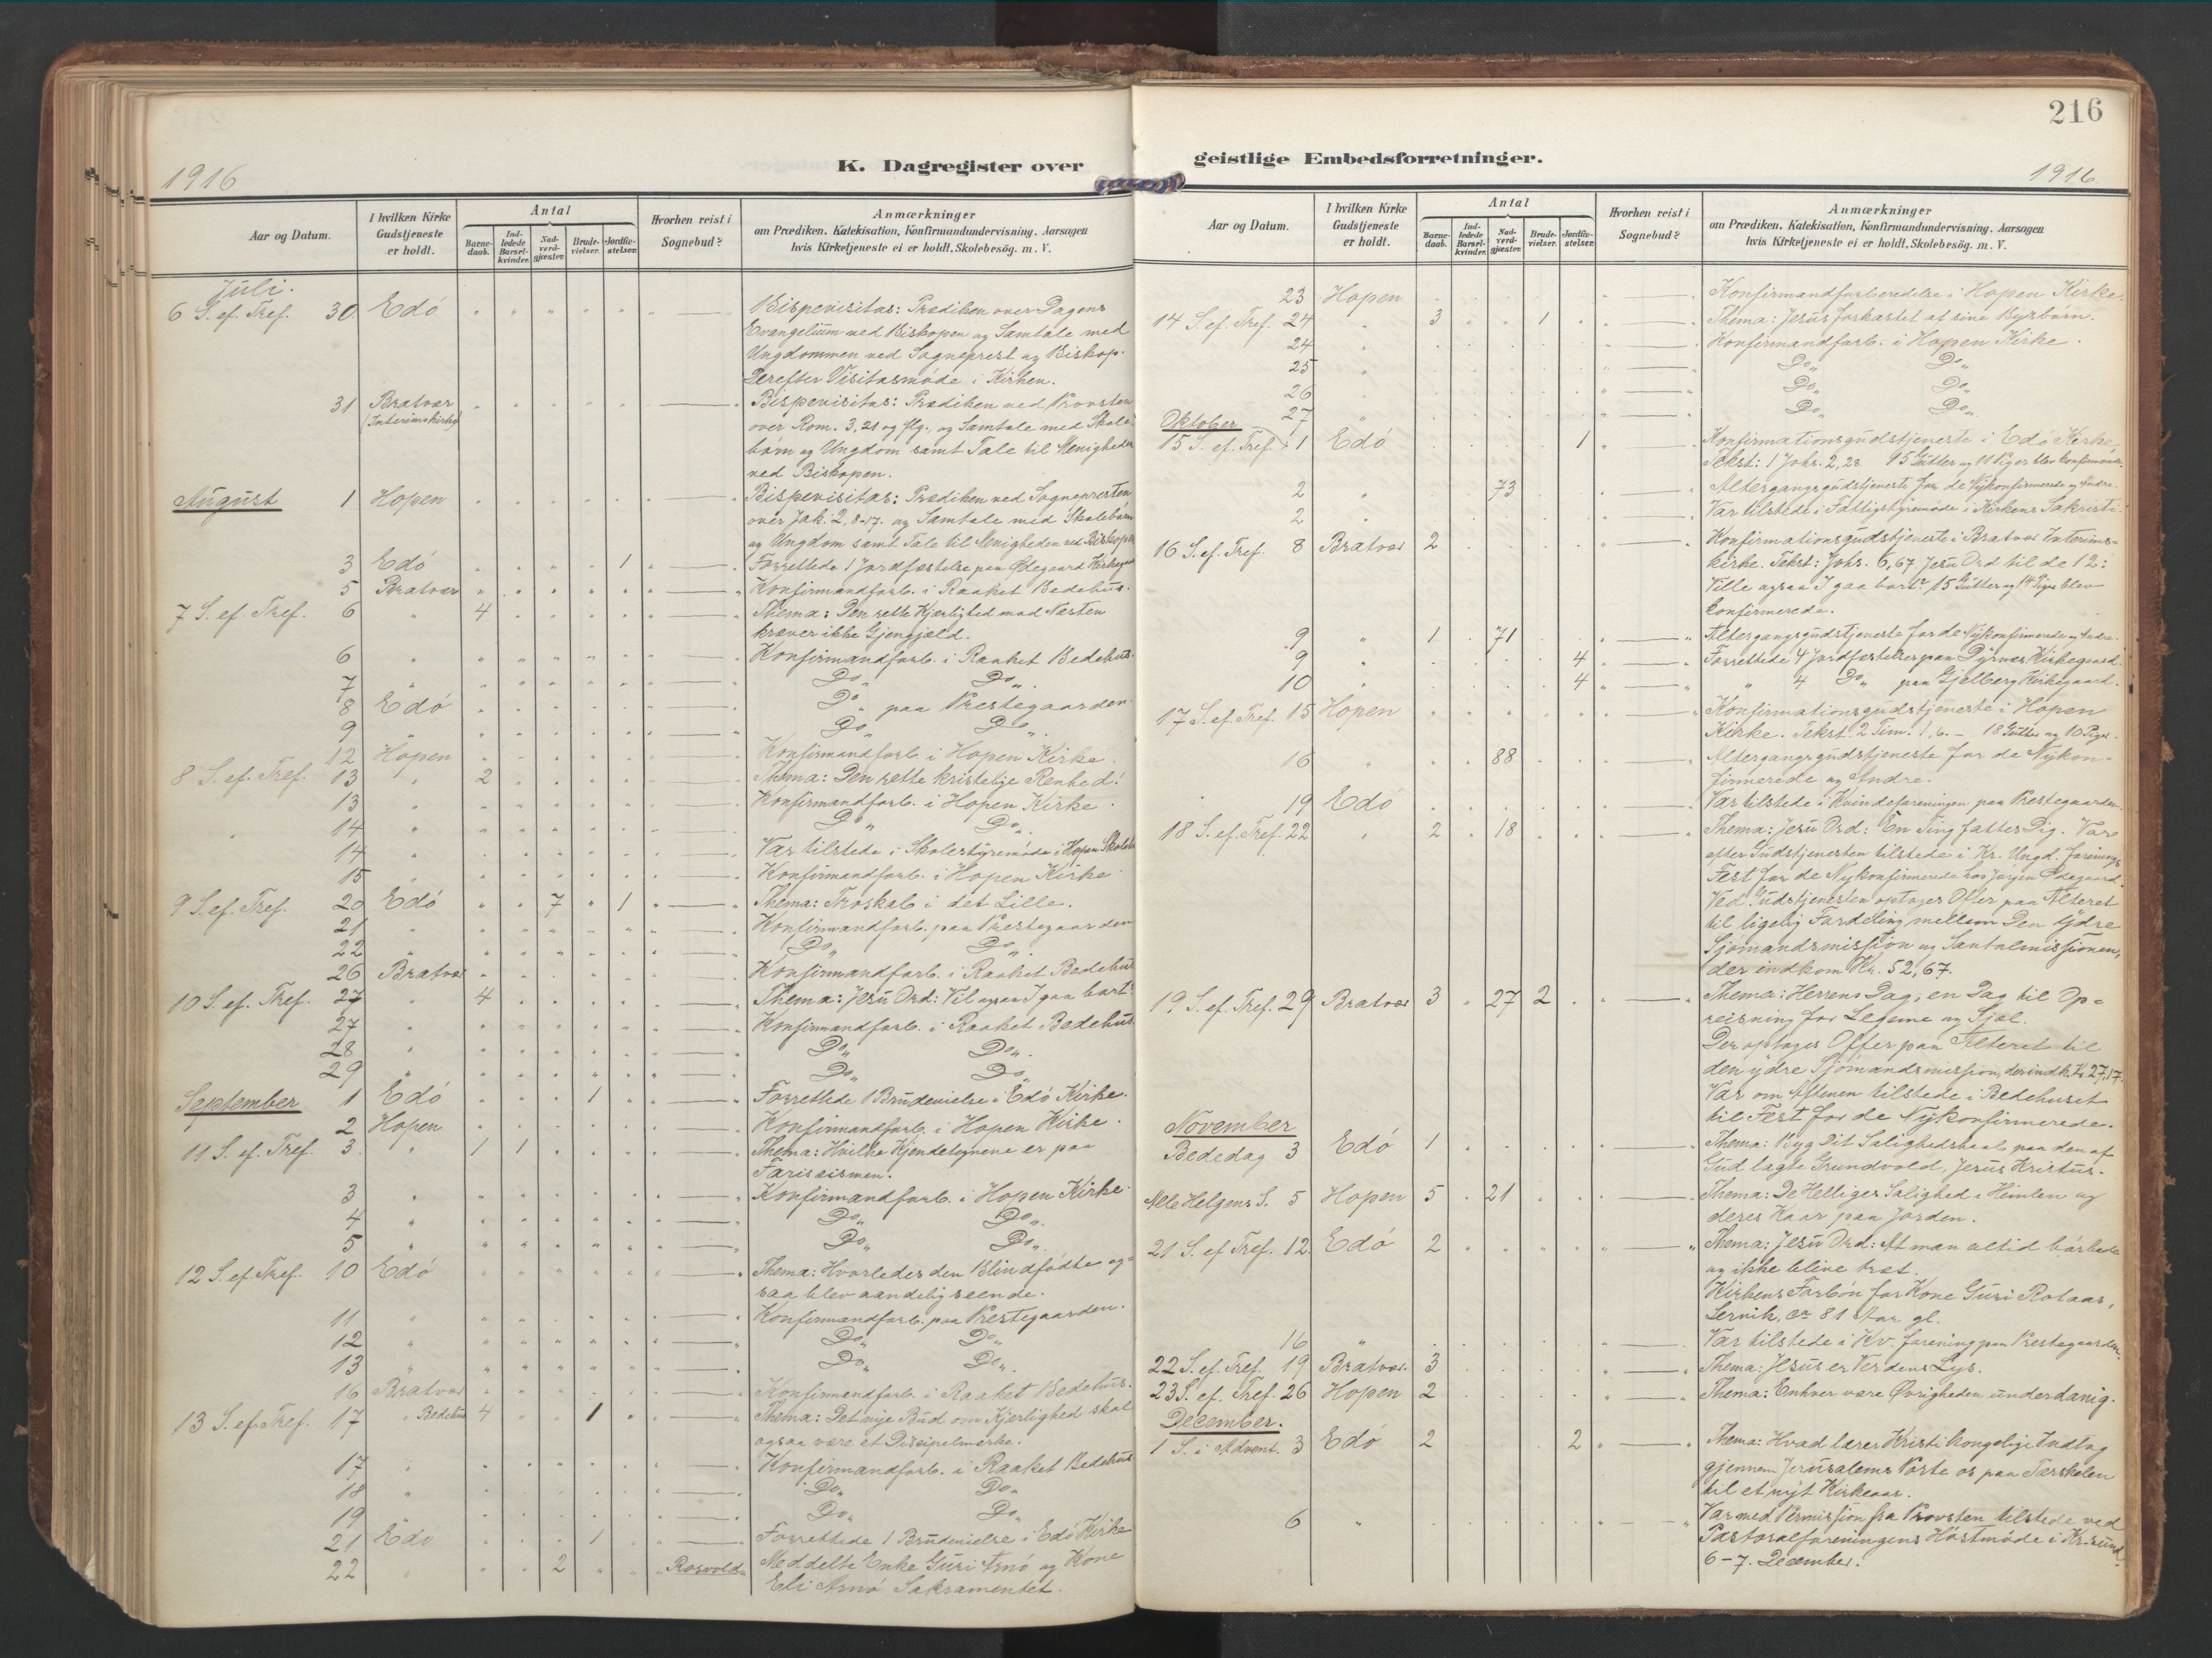 216
K. Dagregister over geistlige Embedsforretninger.
1916
Aar og Datum. I hvilken Kirke Gudstjeneste er holdt. Antal Barnedaab. Indledede Barselkvinder. Nadverdgjæster. Brudevielser. Jordfæstelser. Hvorhen reist i Sognebud? Anmærkninger om Prædiken, Katekisation, Konfirmandundervisning, Aarsagen hvis Kirketjeneste ei er holdt, Skolebesög. m. V.
Juli.
6 S. ef. Tref. 30 Edö Bispevisitas: Prædiken over Dagens
Evangelium ved Biskopen og Samtale med
Ungdommen ved Sogneprest og Biskop.
Derefter Visitasmöde i Kirken.
31 Bratvær Bispevisitas: Prædiken ved Provsten
(Interimskirke) over Rom. 3,21 og flg., og Samtale med Skole-
børn og Ungdom samt Tale til Menigheden
ved Biskopen.
August 1 Hopen Bispevisitas: Prædiken ved Sognepresten
over Jak. 2,8-17. og Samtale med Skolebørn
og Ungdom samt Tale til Menigheden ved Biskopen
3 Edö 1 Forrettede 1 Jordfæstelse paa Ødegaard Kirkegaard
5 Bratvær Konfirmandforb. i Raaket Bedehus.
7 S. ef. Tref. 6 " 4 Thema: Den rette Kjærlighed mod Næsten
kræver ikke Gjengjæld.
6 " Konfirmandforb. i Raaket Bedehus.
7 " Do „ Do „
8 Edö Do „ paa Prestegaarden.
9 " Do „ Do „
12 Hopen Konfirmandforb. i Hopen Kirke.
8 S. ef. Tref. 13 " 2 Thema: Den rette kristelige Renhed.
13 " Konfirmandforb. i Hopen Kirke.
14 " Do „ Do „
14 " Var tilstede i Skolestyremöde i Hopen
15 " Konfirmandforb. i Hopen Kirke.
9 S. ef. Tref. 20 Edö 7 1 Thema: Troskab i det Lille.
21 " Konfirmandforb. paa Prestegaarden
22 " Do „ Do „
26 Bratvær Konfirmandforb. i Raaket Bedehus
10 S. ef. Tref. 27 " 4 Thema: Jesu Ord: Vil ogsaa I gaa bort?
27 " Konfirmandforb. i Raaket Bedehus
28 " Do „ Do „
29 " Do „ Do „
September 1 Edö 1 Forrettede 1 Brudevielse i Edö Kirke.
2 Hopen Konfirmandforb. i Hopen Kirke.
11 S. ef. Tref. 3 " 1 1 Thema: Hvilke Kjendetegnene er paa
Fariseismen.
3 " Konfirmandforb. i Hopen Kirke.
4 " Do „ Do „
5 " Do „ Do „
12 S. ef. Tref. 10 Edö Thema: Hvorledes den Blindfödte og-
saa blev aandelig seende.
11 " Konfirmandforb. paa Prestegaarden.
12 " Do „ Do „
13 " Do „ Do „
16 Bratvær Konfirmandforb. i Raaket Bedehus.
13 S. ef. Tref. 17 " Bedehus 4 1 Thema: Det nye Bud om Kjerlighed skal
ogsaa være et Discipelmerke.
17 " Konfirmandforb. i Raaket Bedehus
18 " Do „ Do „
19 " Do „ Do „
21 Edö 1 Forrettede 1 Brudevielse i Edö Kirke
22 " 2 Rosvold Meddelte Enke Guri Arnö og Kone
Eli Arnö Sakramentet.
1916.
Aar og Datum. I hvilken Kirke Gudstjeneste er holdt. Antal Barnedaab. Indledede Barselkvinder. Nadverdgjæster. Brudevielser. Jordfæstelser. Hvorhen reist i Sognebud? Anmærkninger om Prædiken, Katekisation, Konfirmandundervisning, Aarsagen hvis Kirketjeneste ei er holdt, Skolebesög. m. V.
23 Hopen Konfirmandforberedelse i Hopen Kirke.
14 S. ef. Tref. 24 " 3 1 Thema: Jesus forkastet af sine Bysbarn.
24 " Konfirmandforb. i Hopen Kirke.
25 " Do „ Do „
26 Do „ Do „
27 " Do „ Do „
Oktober
15 S. ef. Tref. 1 Edö 1 Konfirmationsgudstjeneste i Edö Kirke,
Tekst: 1 Johs. 2,28. 15 Gutter og 11 Piger blev konfirmerede.
2 " 73 Altergangsgudstjeneste for de Nykonfirmerede og Andre.
2 " Var tilstede i Fattigstyremöde i Kirkens Sakristi.
16 S. ef. Tref. 8 Bratvær 2 Konfirmationsgudstjeneste i Bratvær Interims-
kirke. Tekst: Johs. 6,67 Jesu Ord til de 12:
Ville ogsaa I gaa bort? 15 Gutter og 14 Piger blev
konfirmerede.
9 " 1 71 Altergangsgudstjeneste for de Nykonfirmerede og Andre.
9 " 4 Forrettede 4 Jordfæstelser paa Dyrnes Kirkegaard.
10 " 4 " 4 Do „ paa Gjelberg Kirkegaard.
17 S. ef. Tref. 15 Hopen Konfirmationsgudstjeneste i Hopen
Kirke. Tekst 2 Tim. 1,6. – 18 Gutter og 10 Piger.
16 " 88 Altergangsgudstjeneste for de Nykon-
firmerede og Andre.
19 Edö Var tilstede i Kvindeforeningen paa Prestegaarden.
18 S. ef. Tref. 22 " 2 18 Thema: Jesu Ord: En Ting fattes Dig. Var
efter Gudstjenesten tilstede i Kr. Ungd. forenings
Fest for de Nykonfirmerede hos Jörgen Ødegaard.
Ved Gudstjenesten optoges Offer paa Alteret
til ligelig Fordeling mellem Den Ydre
Sjömandsmission og Santalmissionen,
der indkom Kr. 52,67.
19 S. ef. Tref. 29 Bratvær 3 27 2 Thema: Herrens Dag, en Dag til Op-
reisning for Legeme og Sjel.
Der optoges Offer paa Alteret til
den ydre Sjömandsmission, der indk. Kr. 27,17.
Var om Aftenen tilstede i Bedehuset
til Fest for de Nykonfirmerede.
November
Bededag 3 Edö 1 Thema: Byg Dit Salighedshaab paa den af
Gud lagte Grundvold, Jesus Kristus.
Alle Helgens S. 5 Hopen 5 21 Thema: De Helliges Salighed i Himlen og
deres Kaar paa Jorden.
21 S. ef. Tref. 12. Edö 2 Thema: Jesu Ord: At man altid bör bede
og ikke blive træt.
Kirkens Forbön for Kone Guri Rotaas,
ca 81 Aar gl.
16 " Var tilstede i Kv. forening paa Prestegaarden.
22 S. ef. Tref. 19 Bratvær 3 Thema: Jesus er Verdens Lys.
23 S. ef. Tref. 26 Hopen 2 Thema: Enhver være Øvrigheden underdanig.
December.
1 S. i Advent. 3 Edö 2 2 Thema: Hvad lærer Kristi kongelige Indtog
gjennem Jerusalems Porte os paa Tærskelen
til et nyt Kirkeaar.
6 " Var med Permission fra Provsten tilstede ved
Pastoralforeningens Höstmöde i Kr.sund
6–7. December.